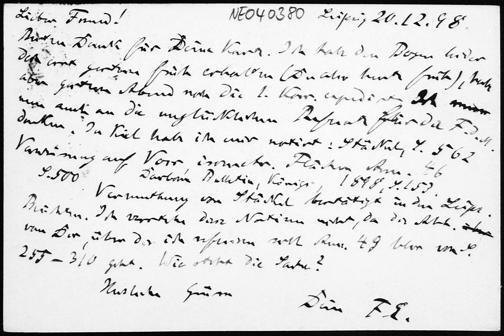 Lieber Freund! NE040380 Leipzig 20.12.98.
Besten Dank für Deine Karte. Ich habe den Bogen leider
erst gestern früh erhalten (Du aber heute früh), habe
aber gestern Abend noch die 1. Korr. expedirt.
nun auch an die unglücklichen Referate für die F.d.M.
denken. In Kiel habe ich mir notirt: Stäckel, S. 562
Verweisung auf Voss isometr. Flächen Anm. 46
S. 500 Darboux Bulletin, Königs, 1898, S. 157.
Vermuthung von Stäckel bestätigt in den Leipz.
Berichten. Ich verstehe diese Notizen nicht, da die Abh.
von Dir, über die ich referiren soll Anm. 49 bloss von S.
255–310 geht. Wie steht die Sache?
Herzliche Grüsse
Dein F. E.